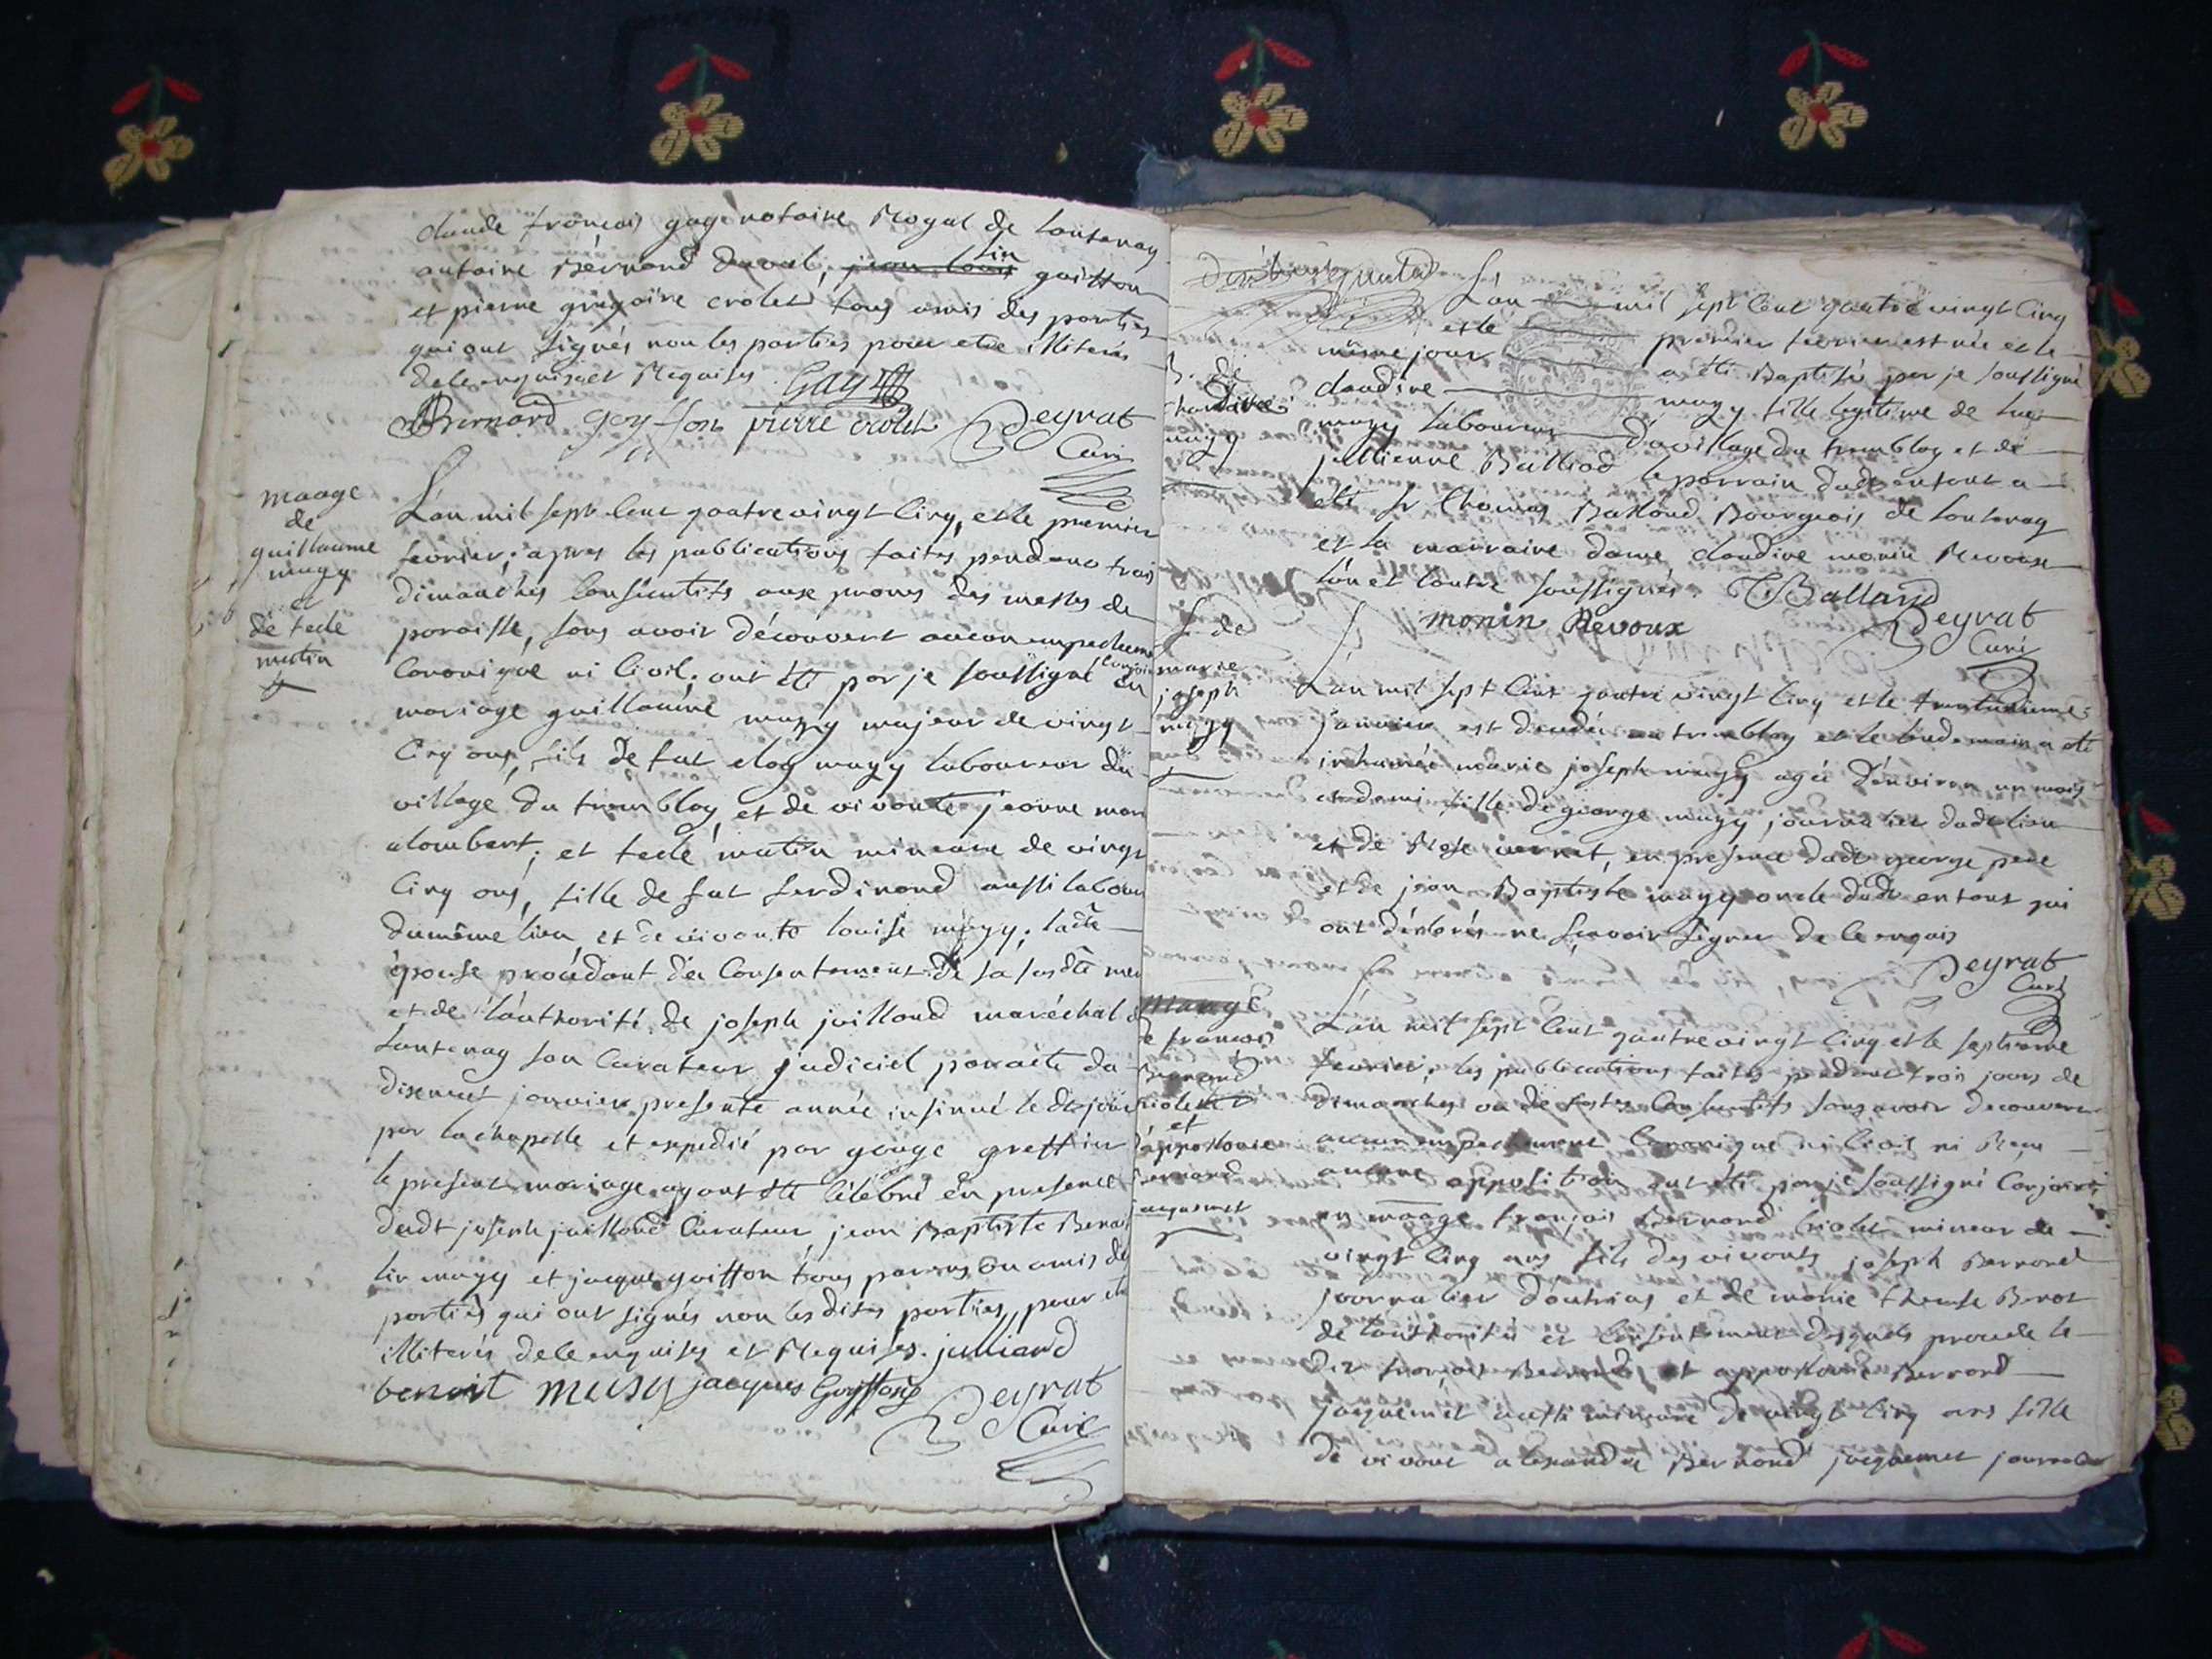 claude françois gay notaire Royal de Lantenay
antoine Bernand duval, lin goiffon
et pierre grégoire crolet tous amis des parties
qui ont signés non les parties pour etre illiterés
de le enquises et Requises. Gay
Bernard goyffon pierre crolet Deyrat
Curé
maage
de
guillaume
mugy
et
de tecle
mutin
L'an mil sept cent quatre vingt cinq, et le premier
fevrier; apres les publications faites pendant trois
dimanches consécutifs aux prones des messes de
paroisse, sans avoir découvert aucun empecheme
canonique ni civil; ont été par je soussigné conjoin en
mariage guillaume mugy majeur de vingt
cinq ans, fils de fut eloy mugy laboureur du
village du tremblay, et de vivante jeanne mari
alombert; et tecle mutin mineure de vingt
cinq ans, fille de fut ferdinand aussi labour
du même lieu, et de vivante louise mugy; ladte
épouse procédant du consentement de sa susdte mer
et de l'authorité de joseph juilland maréchal d
Lantenay son curateur judiciel par acte du
disenuet janvier presente année insinué le dt jour
par lachapelle et expedié par gouge greffier
le present mariage ayant été célébré en presence
dudt joseph juilland curateur, jean Baptiste Benoi
lin mugy et jacque goiffon tous parens ou amis des
parties qui ont signés non les dites parties, pour etr
illiterés de le enquises et Requises. julliard
benoit musy jacques Goyffon Deyrat
Curé
L'an mil sept cent quatre vingt cinq
et le premier fevrier est née et le
même jour a été Baptisée par je soussigné
B. de
claudine
mugy
claudine mugy fille legitime de luc
mugy laboureur du village du tremblay et de
jullienne Balliod le parrain dudt enfant a
été sr thomas Balland Bourgeois de Lantenay
et la marraine dame claudine monin Revoux
l'un et l'autre soussignés. TBalland
monin Revoux Deyrat
Curé
S. de
marie
joseph
mugy
L'an mil sept cent quatre vingt cinq et le
janvier est decedée au tremblay et le lendemain a été
inhumée marie joseph mugy agée d'environ un mois
et demi fille de george mugy journalier dudt lieu
et de Rose vernet, en presence dudt george pere
et de jean Baptiste mugy oncle dudt enfant qui
ont déclarés ne sçavoir signer de le enquis
Deyrat
Curé
maage
de françois
Bernand
violet
et
d'appollonie
Bernand
jacquemet
L'an mil sept cent quatre vingt cinq et le septieme
fevrier, les publications faites pendant trois jours de
dimanches ou de festes consécutifs sans avoir decouvert
aucun empechement canonique ni civil ni Reçu
aucune opposition ont été par je soussigné conjoint
en maage françois Bernand violet mineur de
vingt cinq ans fils des vivants joseph Bernand
journalier d'outriaz et de marie therese Benot
de l'authorité et consentement desquels procede le
dit françois Bernand et appollonie Bernand
jacquemet aussi mineure de vingt cinq ans fille
de vivant alexandre Bernand jacquemet journalier